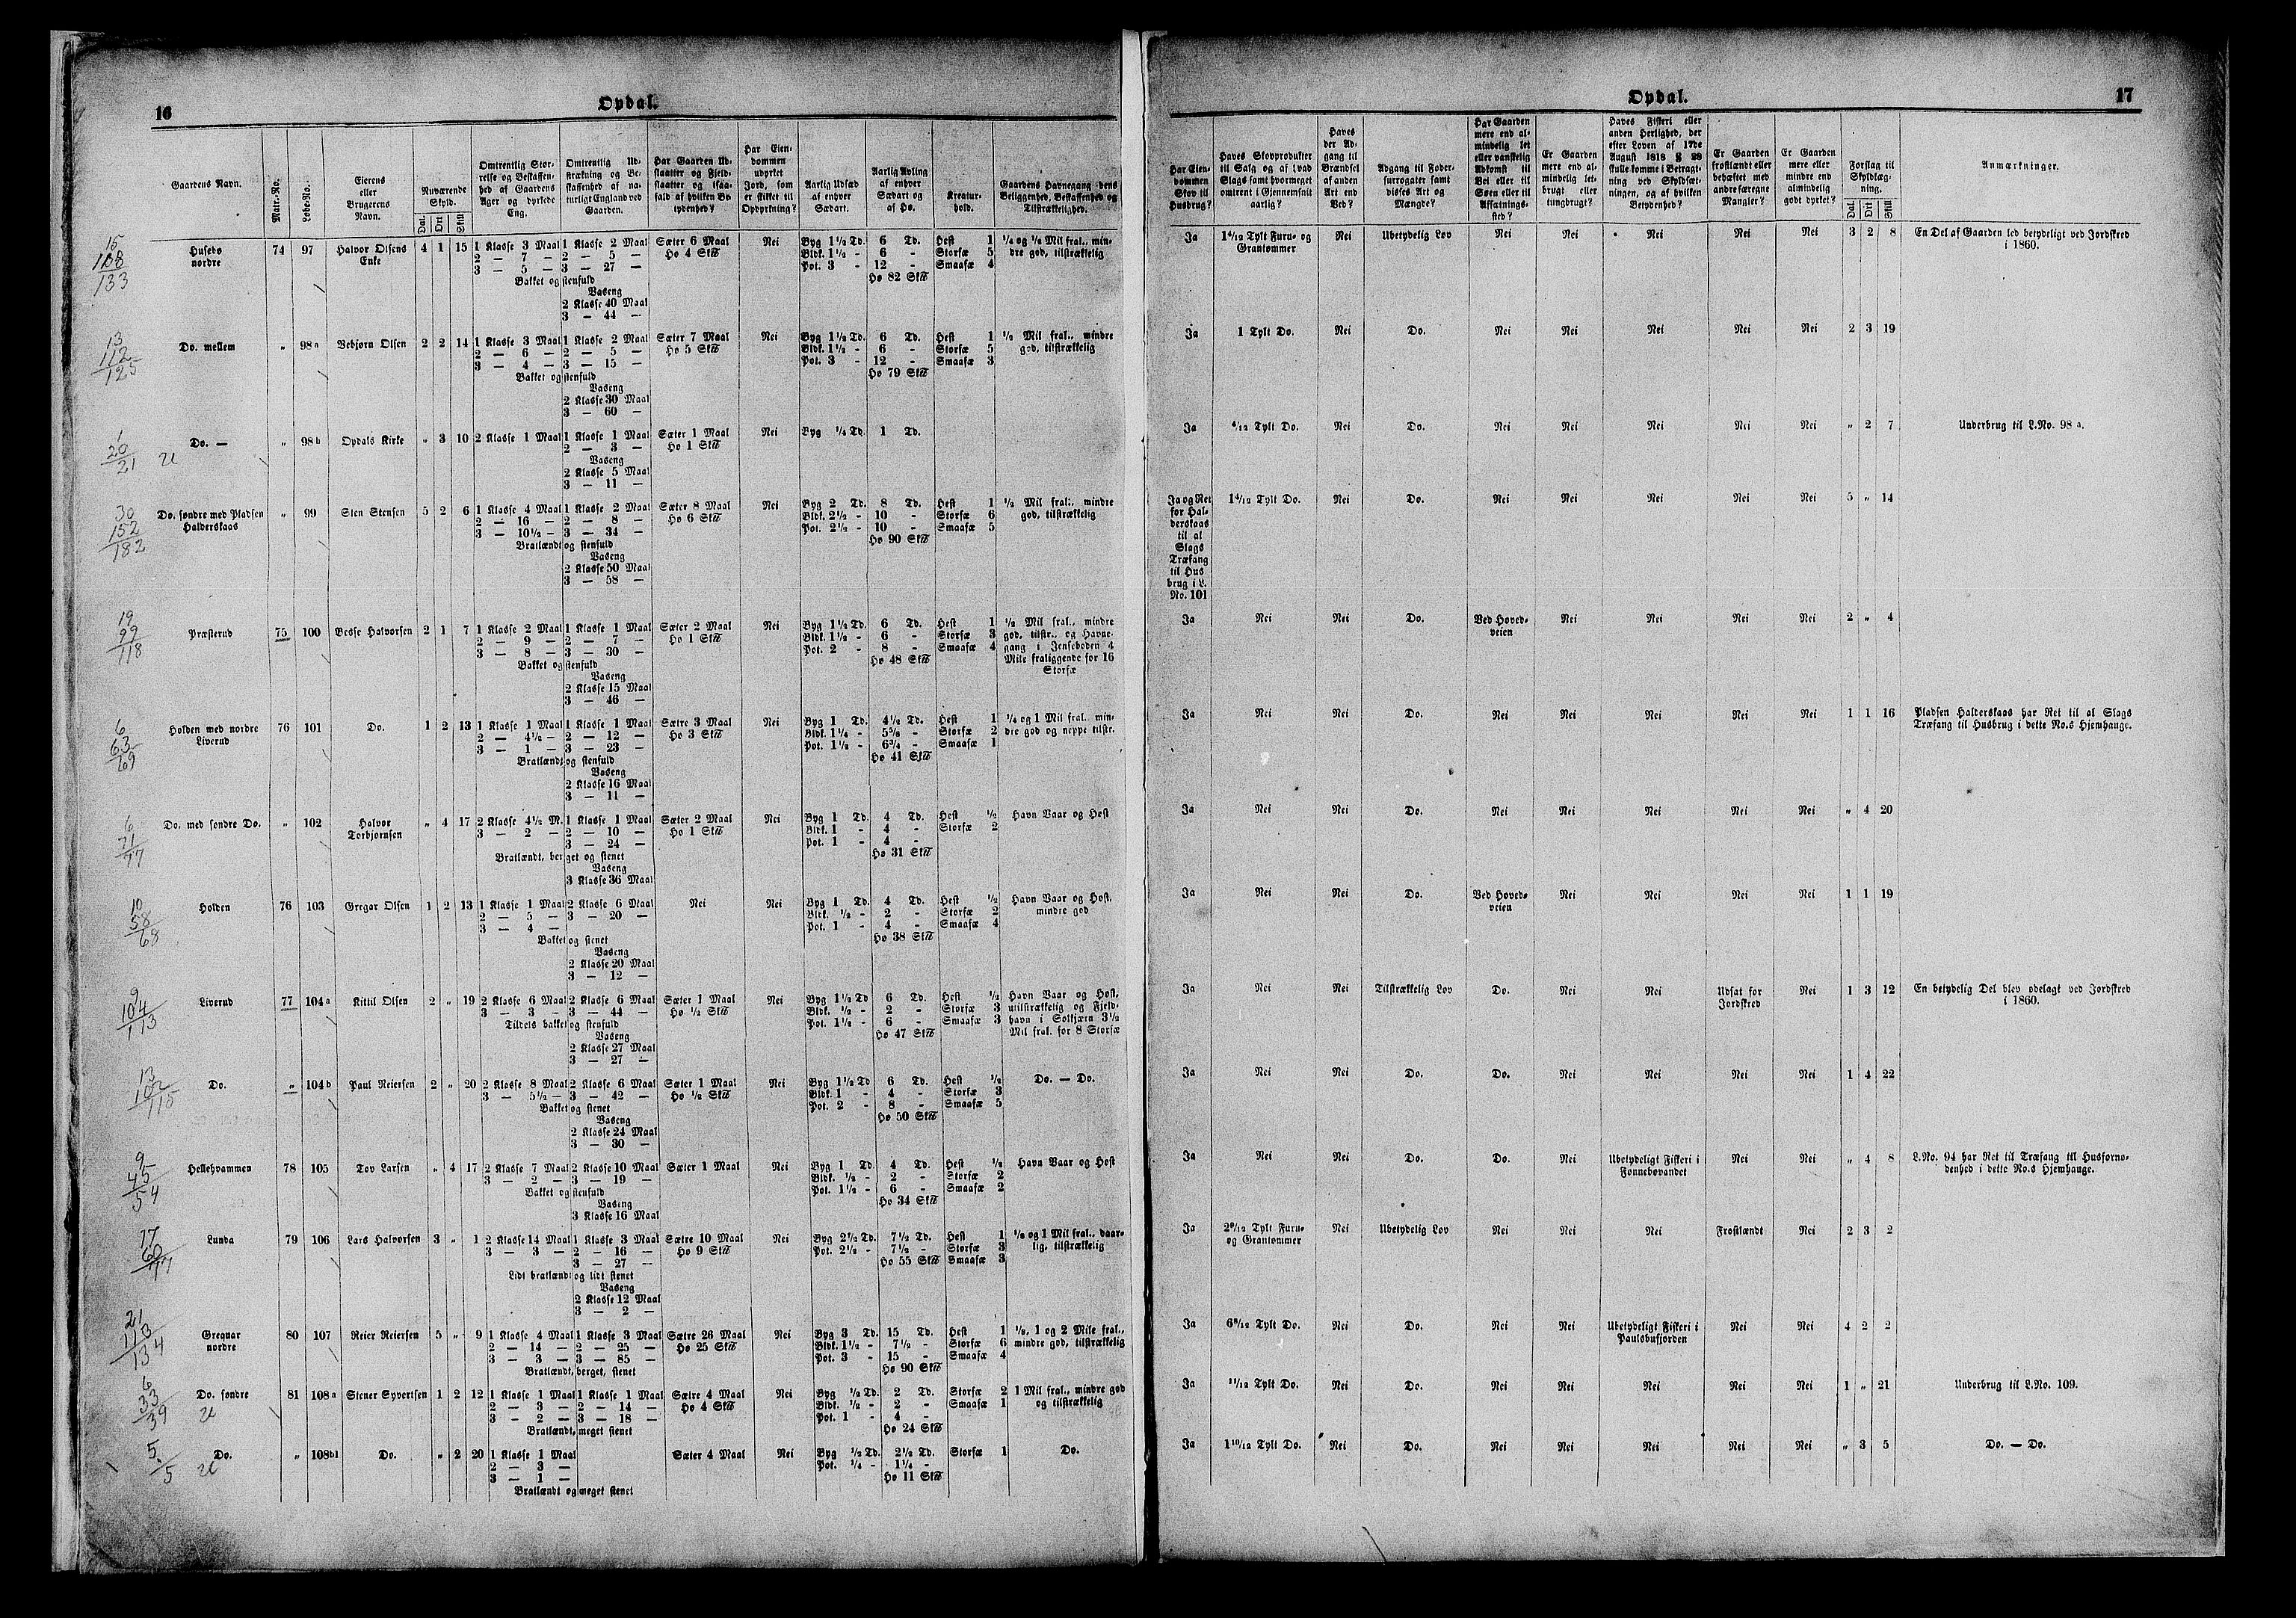 16
Opdal.
Gaardens Navn.
Matr.-No.
Løbe-No.
Eierens
eller
Brugerens
Navn.
Nuværende
Skyld.
Dal. Ort Skill
Omtrentlig Stør-
relse og Bestaffen-
hed af Gaardens
Ager og dyrkede
Eng.
Omtrentlig Ud-
strækning og Be-
skaffenhed af na-
turligt England ved
Gaarden.
Har Gaarden Ud-
slaatter og Field-
slaatter og isaa-
fald af hvilken Be-
tydenhed?
Har Eien-
dommen
udyrket
Jord, som
er skikket til
Opdyrkning?
Aarlig Udsæd
af enhver
Sædart.
Aarlig Avling
af enhver
Sædart og
af Hø.
Kreatur-
hold.
Gaardens Havnegang, dens
Beliggenhed, Beskaffenhed og
Tilstrækkelighed.
15
118
133
Husebø 74 97 Halvor Olsens 4 1 15 1 Klasse 3 Maal 1 Klasse 2 Maal Sæter 6 Maal Nei Byg 1½ Td. 6 Td. Hest 1 ¼ og ⅛ Mil fral., min-
nordre Enke 2 — 7 — 2 — 5 — Hø 4 Sk℔ Bldk. 1½ - 6 - Storfæ 5 dre god, tilstrækkelig
3 — 5 — 3 — 27 — Pot. 3 - 12 - Smaafæ 4
Bakket og stenfuld Hø 82 Sk℔
Vaseng
2 Klasse 40 Maal
3 — 44 —
13
112
125
Do. mellem „ 98 a Vebjørn Olsen 2 2 14 1 Klasse 3 Maal 1 Klasse 2 Maal Sæter 7 Maal Nei Byg 1½ Td. 6 Td. Hest 1 ½ Mil fral., mindre
2 — 6 — 2 — 5 — Hø 5 Sk℔ Bldk. 1½ - 6 - Storfæ 5 god, tilstrækkelig
3 — 4 — 3 — 15 — Pot. 3 - 12 - Smaafæ 3
Bakket og stenfuld Hø 79 Sk℔
Vaseng
2 Klasse 30 Maal
3 — 60 —
1
20
21
Do. — „ 98 b Opdals Kirke „ 3 10 2 Klasse 1 Maal 1 Klasse 1 Maal Sæter 1 Maal Nei Byg ¼ Td. 1 Td.
2 — 3 — Hø 1 Sk℔
Vaseng
2 Klasse 5 Maal
3 — 11 —
30
152
182
Do. søndre med Pladsen „ 99 Sten Stensen 5 2 6 1 Klasse 4 Maal 1 Klasse 2 Maal Sæter 8 Maal Nei Byg 2 Td. 8 Td. Hest 1 ½ Mil fral., mindre
Halderskaas 2 — 16 — 2 — 8 — Hø 6 Sk℔ Bldk. 2½ - 10 - Storfæ 6 god, tilstrækkelig
3 — 10½ — 3 — 34 — Pot. 2½ - 10 - Smaafæ 5
Bratlændt og stenfuld Hø 90 Sk℔
Vaseng
2 Klasse 50 Maal
3 — 58 —
19
99
118
Præsterud 75 100 Vedse Halvorsen 2 1 7 1 Klasse 2 Maal 1 Klasse 1 Maal Sæter 2 Maal Nei Byg 1½ Td. 6 Td. Hest 1 ½ Mil fral., mindre
2 — 9 — 2 — 7 — Hø 1 Sk℔ Bldk. 1½ - 6 - Storfæ 3 god, tilstr., og Havne-
3 — 8 — 3 — 30 — Pot. 2 - 8 - Smaafæ 4 gang i Jenseboden 4
Bakket og stenfuld Hø 48 Sk℔ Mile fraliggende for 16
Vaseng Storfæ
2 Klasse 15 Maal
3 — 46 —
6
63
69
Holden med nordre 76 101 Do. 1 2 13 1 Klasse 1 Maal 1 Klasse 1 Maal Sætre 3 Maal Nei Byg 1 Td. 4½ Td. Hest 1 ¼ og 1 Mil fral. min-
Liverud 2 — 4½ — 2 — 12 — Hø 3 Sk℔ Bldk. 1¼ - 5⅝ - Storfæ 2 dre god og neppe tilstr.
3 — 1 — 3 — 23 — Pot. 1½ - 6¾ - Smaafæ 1
Bratlændt og stenfuld Hø 41 Sk℔
Vaseng
2 Klasse 16 Maal
3 — 11 —
6
71
77
Do. med søndre Do. „ 102 Halvor „ 4 17 2 Klasse 4½ M. 1 Klasse 1 Maal Sæter 2 Maal Nei Byg 1 Td. 4 Td. Hest ½ Havn Vaar og Høst
Torbjørnsen 3 — 2 — 2 — 10 — Hø 1 Sk℔ Bldk. 1 - 4 - Storfæ 2
3 — 24 — Pot. 1 - 4 -
Bratlændt, berget og stenet Hø 31 Sk℔
Vaseng
3 Klasse 36 Maal
10
58
68
Holden 76 103 Gregar Olsen 1 2 13 1 Klasse 1 Maal 2 Klasse 6 Maal Nei Nei Byg 1 Td. 4 Td. Hest ½ Havn Vaar og Høst,
2 — 5 — 3 — 20 — Bldk. ½ - 2 - Storfæ 2 mindre god
3 — 4 — Pot. 1 - 4 - Smaafæ 4
Bakket og stenet Hø 38 Sk℔
Vaseng
2 Klasse 20 Maal
3 — 12 —
9
104
113
Liverud 77 104 a Kittil Olsen 2 „ 19 2 Klasse 6 Maal 2 Klasse 6 Maal Sæter 1 Maal Nei Byg 1½ Td 6 Td. Hest ½ Havn Vaar og Høst,
3 — 3 — 3 — 44 — Hø ½ Sk℔ Bldk. ½ - 2 - Storfæ 3 utilstrækkelig og Fjeld-
Tildels bakket og stenfuld Pot. 1½ - 6 - Smaafæ 3 havn i Solhjærn 3½
Vaseng Hø 47 Sk℔ Mil fral. for 8 Storfæ
2 Klasse 27 Maal
3 — 27 —
13
102
115
Do. „ 104 b Paul Reiersen 2 „ 20 2 Klasse 8 Maal 2 Klasse 6 Maal Sæter 1 Maal Nei Byg 1½ Td 6 Td. Hest ½ Do. — Do.
3 — 5½ — 3 — 42 — Hø ½ Sk℔ Bldk. 1 - 4 - Storfæ 3
Bakket og stenet Pot. 2 - 8 - Smaafæ 5
Vaseng Hø 50 Sk℔
2 Klasse 24 Maal
3 — 30 —
9
45
54
Hellehvammen 78 105 Tov Larsen „ 4 17 2 Klasse 7 Maal 2 Klasse 10 Maal Sæter 1 Maal Nei Byg 1 Td. 4 Td. Hest ½ Havn Vaar og Høst
3 — 2 — 3 — 19 — Bldk. ½ - 2 - Storfæ 2
Bakket og stenfuld Pot. 1½ - 6 - Smaafæ 2
Vaseng Hø 34 Sk℔
3 Klasse 16 Maal
17
60
77
Lunda 79 106 Lars Halvorsen 3 „ 1 2 Klasse 14 Maal 1 Klasse 3 Maal Sætre 10 Maal Nei Byg 2½ Td. 7½ Td. Hest 1 ⅛ og 1 Mil fral., daar-
3 — 3 — 2 — 16 — Hø 9 Sk℔ Pot. 2½ - 7½ - Storfæ 3 lig, tilstrækkelig
3 — 27 — Hø 55 Sk℔ Smaafæ 3
Lidt bratlændt og lidt stenet
Vaseng
2 Klasse 12 Maal
3 — 2 —
21
113
134
Gregnar 80 107 Reier Reiersen 5 „ 9 1 Klasse 4 Maal 1 Klasse 3 Maal Sætre 26 Maal Nei Byg 3 Td. 15 Td. Hest 1 ⅛, 1 og 2 Mile fral.,
nordre 2 — 14 — 2 — 25 — Hø 25 Sk℔ Bldk. 1½ - 7½ - Storfæ 6 mindre god, tilstrækkelig
3 — 3 — 3 — 85 — Pot. 3 - 15 - Smaafæ 4
Bratlændt, berget, stenet Hø 90 Sk℔
6
33
39
Do. søndre 81 108 a Stener Syvertsen 1 2 12 1 Klasse 1 Maal 1 Klasse 1 Maal Sætre 4 Maal Nei Byg ½ Td. 2 Td. Storfæ 2 1 Mil fral., mindre god
2 — 3 — 2 — 14 — Hø 4 Sk℔ Bldk. ½ - 2 - Smaafæ 1 og tilstrækkelig
3 - 2 — 3 — 18 — Pot. 1 - 4 -
Bratlændt, meget stenet Hø 24 Sk℔
5
5
Do. „ 108 b1 Do. „ 2 20 1 Klasse 1 Maal Sæter 4 Maal Nei Byg ½ Td. 2½ Td. Storfæ 1 Do.
2 — 3 — Pot. ¼ - 1¼ -
3 — 1 — Hø 11 Sk℔
Bratlændt og meget stenet
Opdal.
17
Har Eien-
dommen
Skov til
Husbrug?
Haves Skovprodukter
til Salg og af hvad
Slags samt hvormeget
omtrent i Gjennemsnit
aarlig?
Haves
der Ad-
gang til
Brændsel
af anden
Art end
Ved?
Adgang til Foder-
surrogater samt
disses Art og
Mængde?
Har Gaarden
mere end al-
mindelig let
eller vanskelig
Adkomst til
Vei eller til
Søen eller til
Afsætnings-
sted?
Er Gaarden
mere end al-
mindelig let-
brugt eller
tungbrugt?
Haves Fiskeri eller
anden Herlighed, der
efter Loven af 17de
August 1818 § 28
skulle komme i Betragt-
ning ved Skyldsæt-
ningen, og af hvilken
Betydenhed?
Er Gaarden
frostlændt eller
behæftet med
andre særegne
Mangler?
Er Gaarden
mere eller
mindre end
almindelig
godt dyrket?
Forslag til
Skyldlæg-
ning.
Dal. Ort Skill
Anmærkninger.
Ja 1 4/12 Tylt Furu- og Nei Ubetydelig Løv Nei Nei Nei Nei Nei 3 2 8 En Del af Gaarden led betydeligt ved Jordskred
Grantømmer i 1860.
Ja 1 Tylt Do. Nei Do. Nei Nei Nei Nei Nei 2 3 19
Ja 4/12 Tylt Do. Nei Do. Nei Nei Nei Nei Nei „ 2 7 Underbrug til L.No. 98 a.
Ja og Ret 1 4/12 Tylt Do. Nei Do. Nei Nei Nei Nei Nei 5 „ 14
for Hal-
derskaas
til al
Slags
Træfang
til Hus
brug i L.
No. 101
Ja Nei Nei Do. Ved Hoved- Nei Nei Nei Nei 2 „ 4
veien
Ja Nei Nei Do. Nei Nei Nei Nei Nei 1 1 16 Pladsen Halderskaas har Ret til al Slags
Træfang til Husbrug i dette No.s Hjemhauge.
Ja Nei Nei Do. Nei Nei Nei Nei Nei „ 4 20
Ja Nei Nei Do. Ved Hoved- Nei Nei Nei Nei 1 1 19
veien
Ja Nei Nei Tilstrækkelig Løv Do. Nei Nei Udsat for Nei 1 3 12 En betydelig Del blev ødelagt ved Jordskred
Jordskred i 1860.
Ja Nei Nei Do. Do. Nei Nei Nei Nei 1 4 22
Ja Nei Nei Do. Do. Nei Ubetydeligt Fiskeri i Nei Nei „ 4 8 L.No. 94 har Ret til Træfang til Husforno-
Fønnebøvandet denhed i dette No.s Hjemhauge.
Ja 2 8/12 Tylt Furu- Nei Ubetydelig Løv Nei Nei Nei Frostlændt Nei 2 3 2
og Grantømmer
Ja 6 8/12 Tylt Do. Nei Do. Nei Nei Ubetydeligt Fiskeri i Nei Nei 4 2 2
Paulsbufjorden
Ja 11/12 Tylt Do. Nei Do. Nei Nei Nei Nei Nei 1 „ 21 Underbrug til L.No. 109.
Ja 1 10/12 Tylt Do. Nei Do. Nei Nei Nei Nei Nei „ 3 5 Do. — Do.